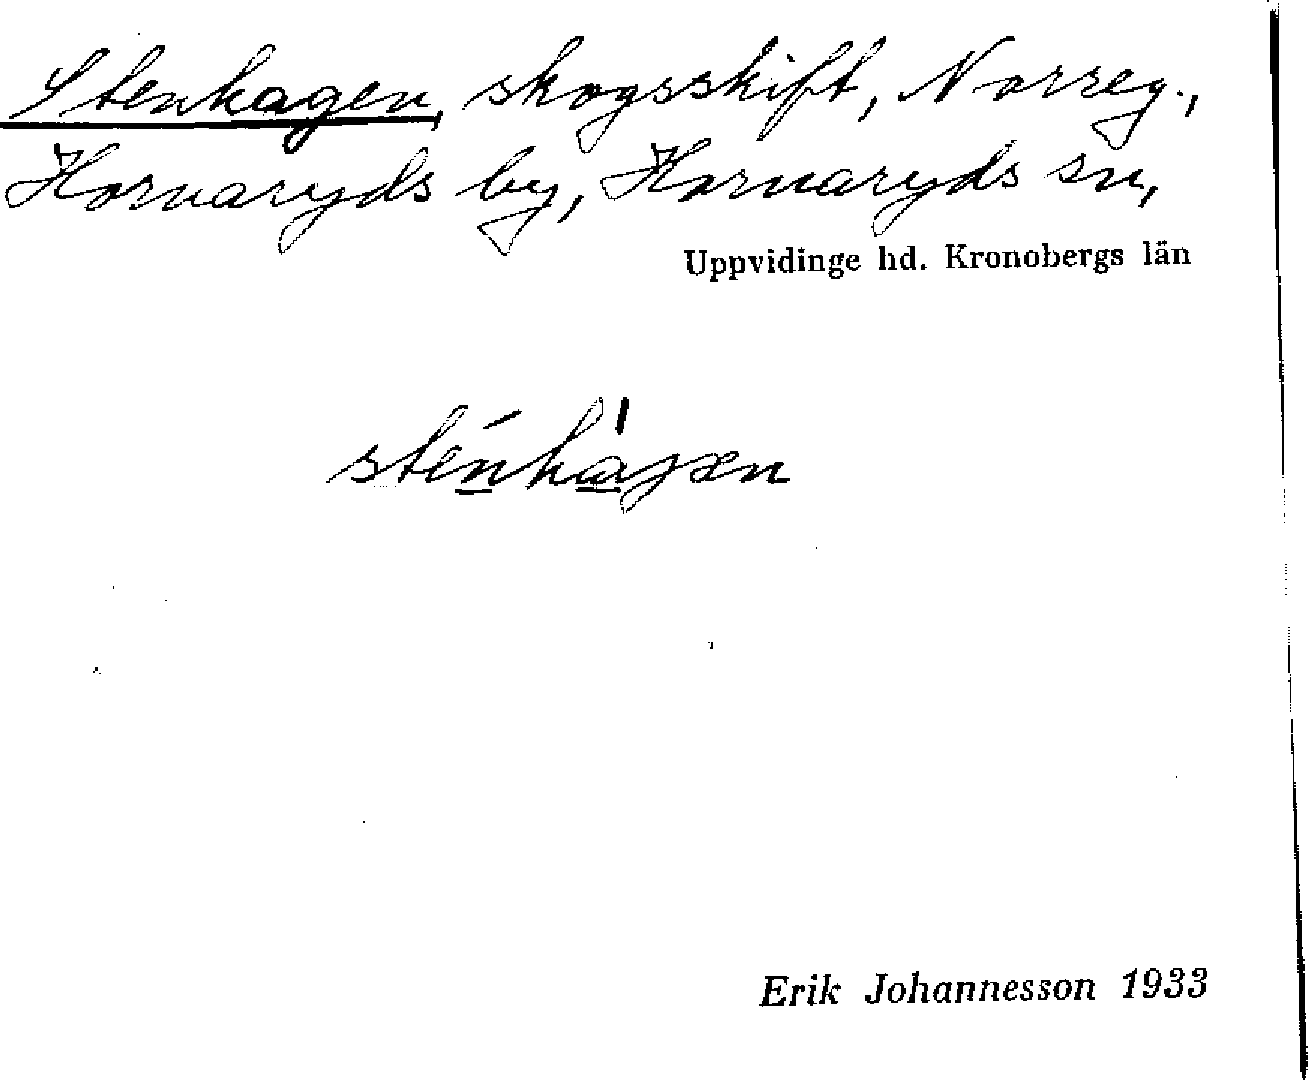 Stenhagen, skogsskift, Norreg.,
Hornaryds by, Hornaryds sn,
Uppvidinge hd. Kronobergs län
sténha̍gen
Erik Johannesson 1933